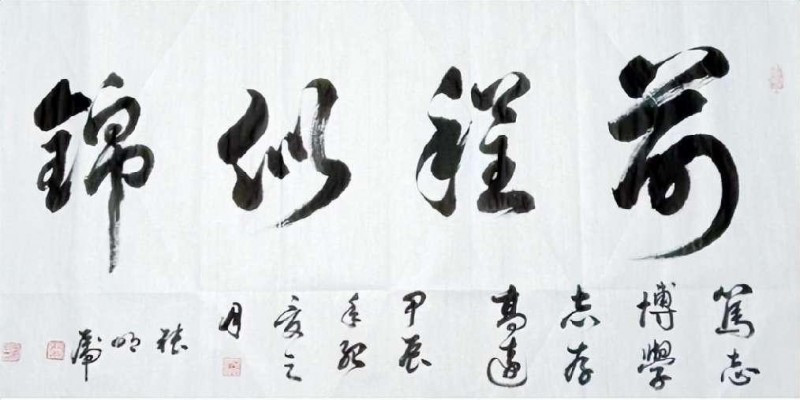 前程似錦
篤志
博學
志存
高遠
甲辰
年初
夏之
月